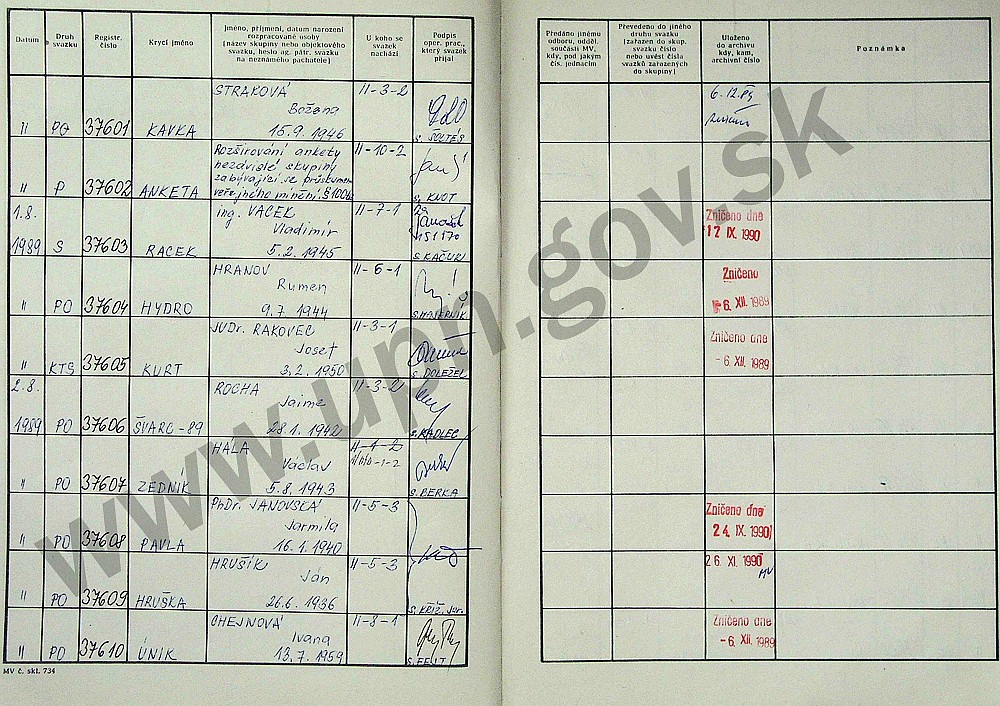 Datum
Druh svazku
Registr. číslo
Krycí jméno
Jméno, příjmení, datum narození
rozpracované osoby
(název skupiny nebo objektového
svazku, heslo ag. pátr. svazku
na neznámého pachatele)
U koho se
svazek
nachází
Podpis
oper. prac.,
který svazek
přijal
Předáno jinému
odboru, odděl.
součásti MV,
kdy, pod jakým
čís. jednacím
Převedeno do jiného
druhu svazku
(zařazen do skup.
svazku číslo
nebo uvést čísla
svazků zařazených
do skupiny)
Uloženo
do archivu
kdy, kam,
archivní číslo
Poznámka
STRAKOVÁ II-3-2 6.12.89
Božena
II PO 37601 KAVKA 15.9.1946 s. ŠOLTÉS
Rozšiřování ankety II-10-2
nezávislé skupiny
zabývající se průzkumem
II P 37602 ANKETA veřejného mínění, §100 s. KNOT
1.8. ing. VACEK II-7-1 Zničeno dne
Vladimír 151170 12 IX. 1990
1989 S 37603 RACEK 5.2.1945 s. KAČUR
HRANOV II-6-1 Zničeno
Rumen -6. XII. 1989
II PO 37604 HYDRO 9.7.1944 s. MAJERNÍK
JUDr. RAKOVEC II-3-1 Zničeno dne
Josef -6. XII. 1989
II KTS 37605 KURT 3.2.1950 s. DOLEŽEL
2.8. ROCHA II-3-2
Jaime
1989 PO 37606 ŠVARC-89 28.1.1942 s. KADLEC
HALA II-1-2
Václav
II PO 37607 ZEDNÍK 5.8.1943 s. BERKA
PhDr. JANOVSKÁ II-5-3 Zničeno dne
Jarmila 24. IX. 1990
II PO 37608 PAVLA 16.1.1940
HRUŠÍK II-5-3 26. XI. 1990
Ján MV
II PO 37609 HRUŠKA 26.6.1936 s. KŘÍŽ Jar.
CHEJNOVÁ II-8-1 Zničeno dne
Ivana -6. XII. 1989
II PO 37610 ÚNIK 13.7.1959 s. FEJT
MV č. skl. 734
www.upn.gov.sk